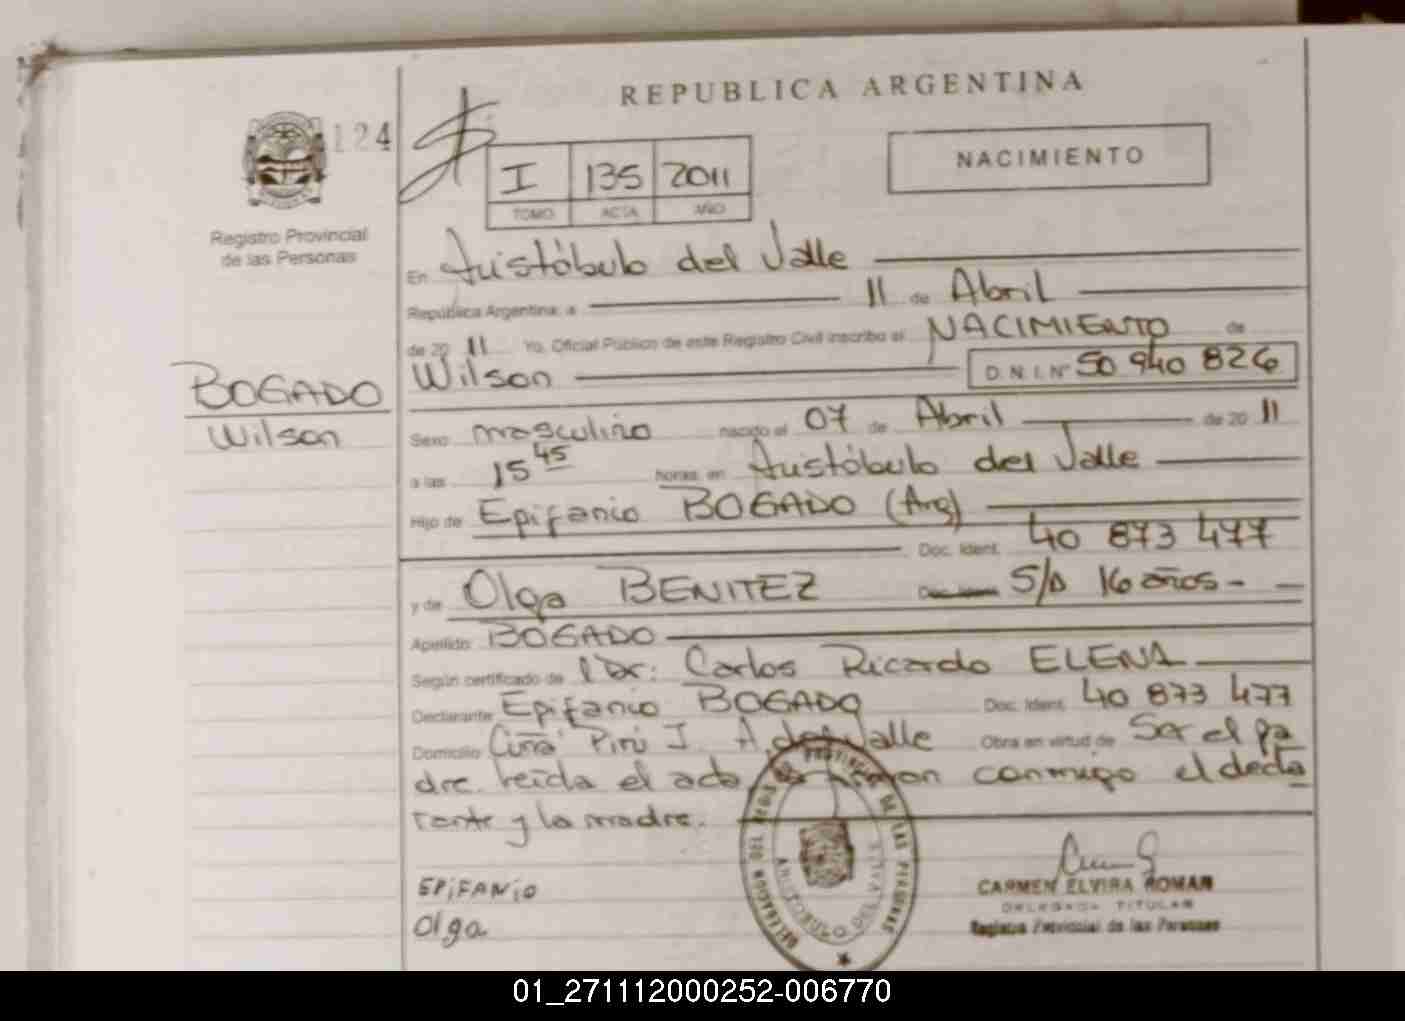 REPUBLICA ARGENTINA
124
I 135 2011
TOMO ACTA AÑO
NACIMIENTO
Registro Provincial
de las Personas
En Aristóbulo del Valle
República Argentina, a 11 de Abril
de 2011 Yo, Oficial Público de este Registro Civil inscribo el NACIMIENTO de
Wilson D.N.I. Nº 50 940 826
BOGADO
Wilson
Sexo masculino nacido el 07 de Abril de 2011
a las 15 45 horas, en Aristóbulo del Valle
Hijo de Epifanio BOGADO (Arg)
Doc. Ident. 40 873 477
y de Olga BENITEZ S/D 16 años -
Apellido BOGADO
Según certificado de Dr: Carlos Ricardo ELENA
Declarante Epifanio BOGADO Doc. Ident. 40 873 477
Domicilio Cuña Pirú I A. del Valle Obra en virtud de Ser el pa
dre. leida el acta, conmigo el decla
rante y la madre.
EPiFANiO
Olga
DELEGACION DEL REGISTRO PROVINCIAL DE LAS PERSONAS
ARISTOBULO DEL VALLE
CARMEN ELVIRA ROMAN
DELEGADA TITULAR
Registro Provincial de las Personas
01_271112000252-006770